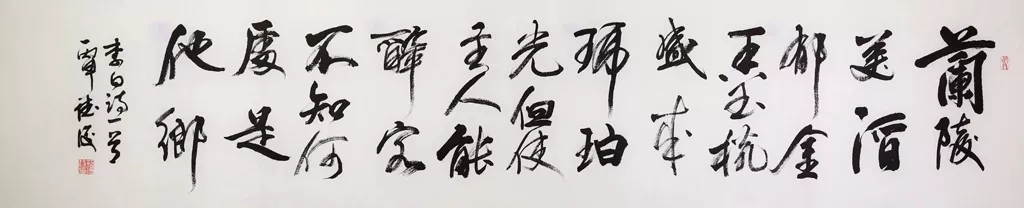 蘭陵
美酒
郁金
香玉椀
盛来
琥珀
光但使
主人能
醉客
不知何
處是
他鄉
李白詩一首